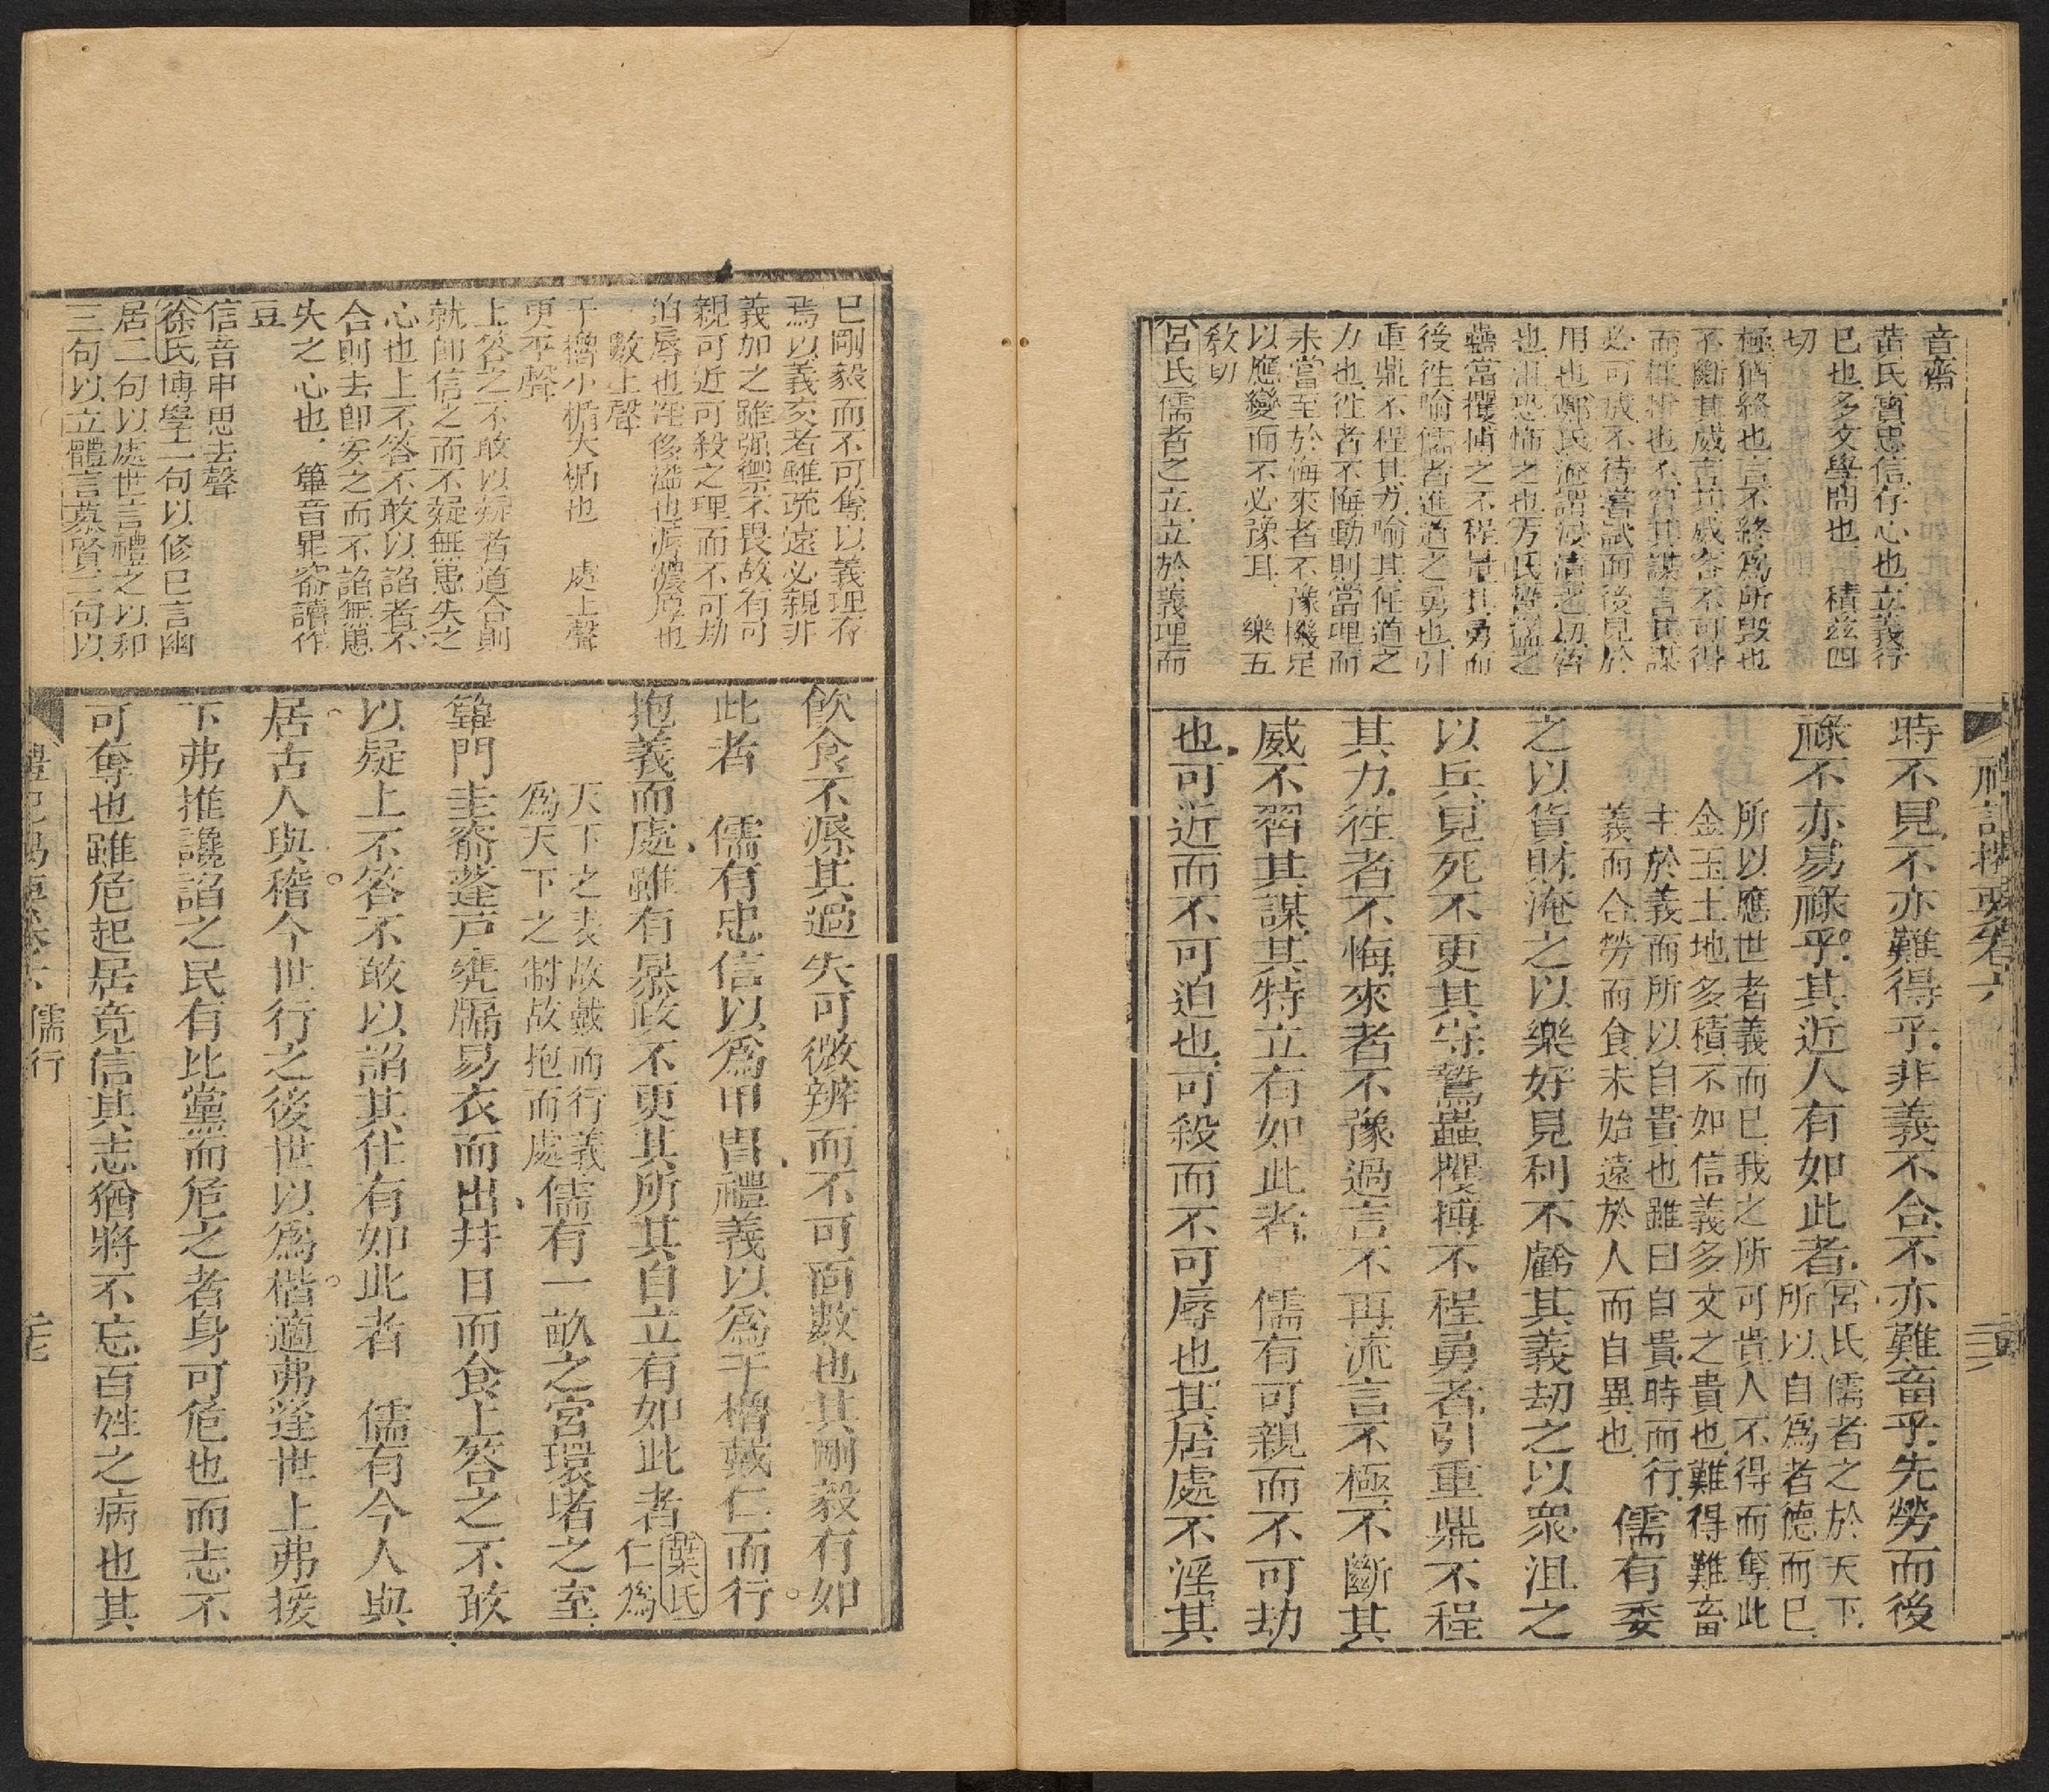 音齋
黃氏寶忠信存心也立義行
已也多文學問也 積茲四
切
極猶終也言不終為所毀也
不斷其威言其威容不可得
而挫折也不習其謀言其謀
必可成不待嘗試而後見於
用也鄭氏淹謂浸漬之劫脅
也沮恐怖之也方氏鷙猛之
蟲當攫搏之不程量其勇而
後往喻儒者進道之勇也引
重鼎不程其力喻其任道之
力也往者不悔動則當理而
未嘗至於悔來者不豫機足
以應變而不必豫耳 樂五
教切
呂氏儒者之立立於義理而
禮記揭要卷六
時不見不亦難得乎非義不合不亦難畜乎先勞而後
祿不亦易祿乎其近人有如此者
宮氏儒者之於天下
所以自為者德而已
所以應世者義而已我之所可貴人不得而奪此
金玉土地多積不如信義多文之貴也難得難畜
主於義而所以自貴也雖曰自貴時而行
義而合勞而食未始遠於人而自異也
儒有委
之以貨財淹之以樂好見利不虧其義劫之以衆沮之
以兵見死不更其守鷙蟲攫搏不程勇者引重鼎不程
其力往者不悔來者不豫過言不再流言不極不斷其
威不習其謀其特立有如此者 儒有可親而不可劫
也可近而不可迫也可殺而不可辱也其居處不淫其
已剛毅而不可奪以義理存
焉以義交者雖疏遠必親非
義加之雖强禦不畏故有可
親可近可殺之理而不可劫
迫辱也淫侈溢也溽濃厚也
數上聲
干櫓小楯大楯也 處上聲
更平聲
上答之不敢以疑者道合則
就卽信之而不疑無患失之
心也上不答不敢以諂者不
合則去卽安之而不諂無患
失之心也 篳音畢窬讀作
豆
信音申思去聲
徐氏博學二句以修已言幽
居二句以處世言禮之以和
三句以立體言慕賢二句以
飲食不溽其過失可微辨而不可面數也其剛毅有如
此者 儒有忠信以爲甲胄禮義以爲干櫓戴仁而行
抱義而處雖有暴政不更其所其自立有如此者
葉氏
仁爲
天下之表故戴而行義
爲天下之制故抱而處
儒有一畝之宮環堵之室
篳門圭窬蓬戶甕牖易衣而出幷日而食上答之不敢
以疑上不答不敢以諂其仕有如此者 儒有今人與
居古人與稽今世行之後世以爲楷適弗逢世上弗援
下弗推讒諂之民有比黨而危之者身可危也而志不
可奪也雖危起居竟信其志猶將不忘百姓之病也其
儒行